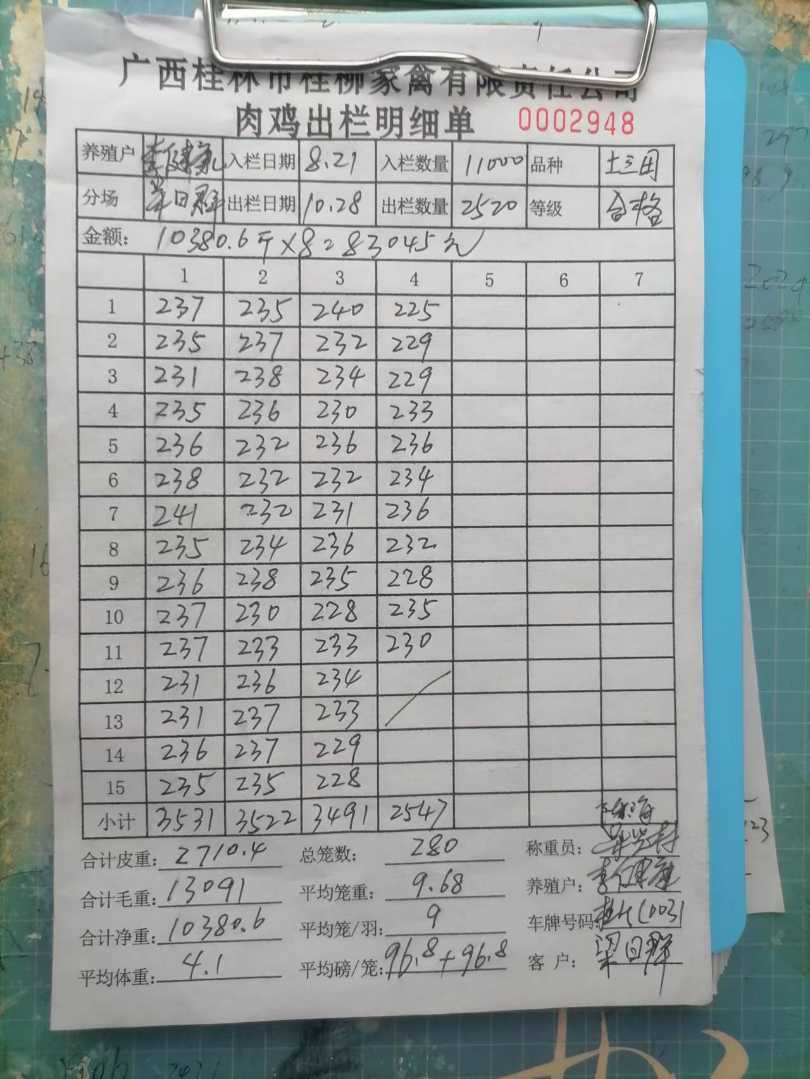 广西桂林市桂柳家禽有限责任公司
肉鸡出栏明细单 0002948
养殖户 入栏日期 8.21 入栏数量 11000 品种 土三田
分场 梁日群 出栏日期 10.28 出栏数量 2520 等级 合格
金额: 10380.6斤×8=83045元
1 2 3 4 5 6 7
1 237 235 240 225
2 235 237 232 229
3 231 238 234 229
4 235 236 230 233
5 236 232 236 236
6 238 232 232 234
7 241 232 231 236
8 235 234 236 232
9 236 238 235 228
10 237 230 228 235
11 237 233 233 230
12 231 236 234
13 231 237 233
14 236 237 229
15 235 235 228
小计 3531 3522 3491 2547
合计皮重: 2710.4 总笼数: 280 称重员:
合计毛重: 13091 平均笼重: 9.68 养殖户:
合计净重: 10380.6 平均笼/羽: 9 车牌号码:
平均体重: 4.1 平均磅/笼: 96.8+96.8 客户: 梁日群